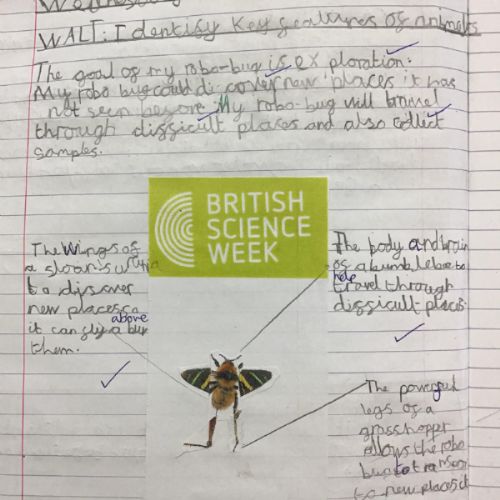 Wednesday
WALT: Identify Key features of animals
The goal of my robo-bug is exploration.
My robo bug could discover new places it has
not seen before. My robo-bug will travel
through difficult places and also collect
samples.
BRITISH
SCIENCE
WEEK
The wings of
a
to
new places
it can fly above
them.
The body and brain
of a bumble bee to
help
travel through
difficult places.
The powerful
legs of a
grasshopper
allows the robo
bug to
to new places